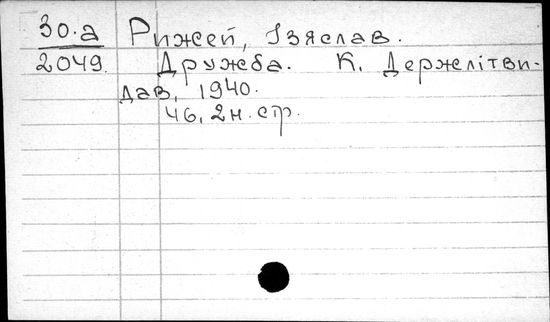 30.а Рижей, Ізяслав.
2049. Дружба. К. Держлітви-
дав, 1940.
46, 2 н. стр.